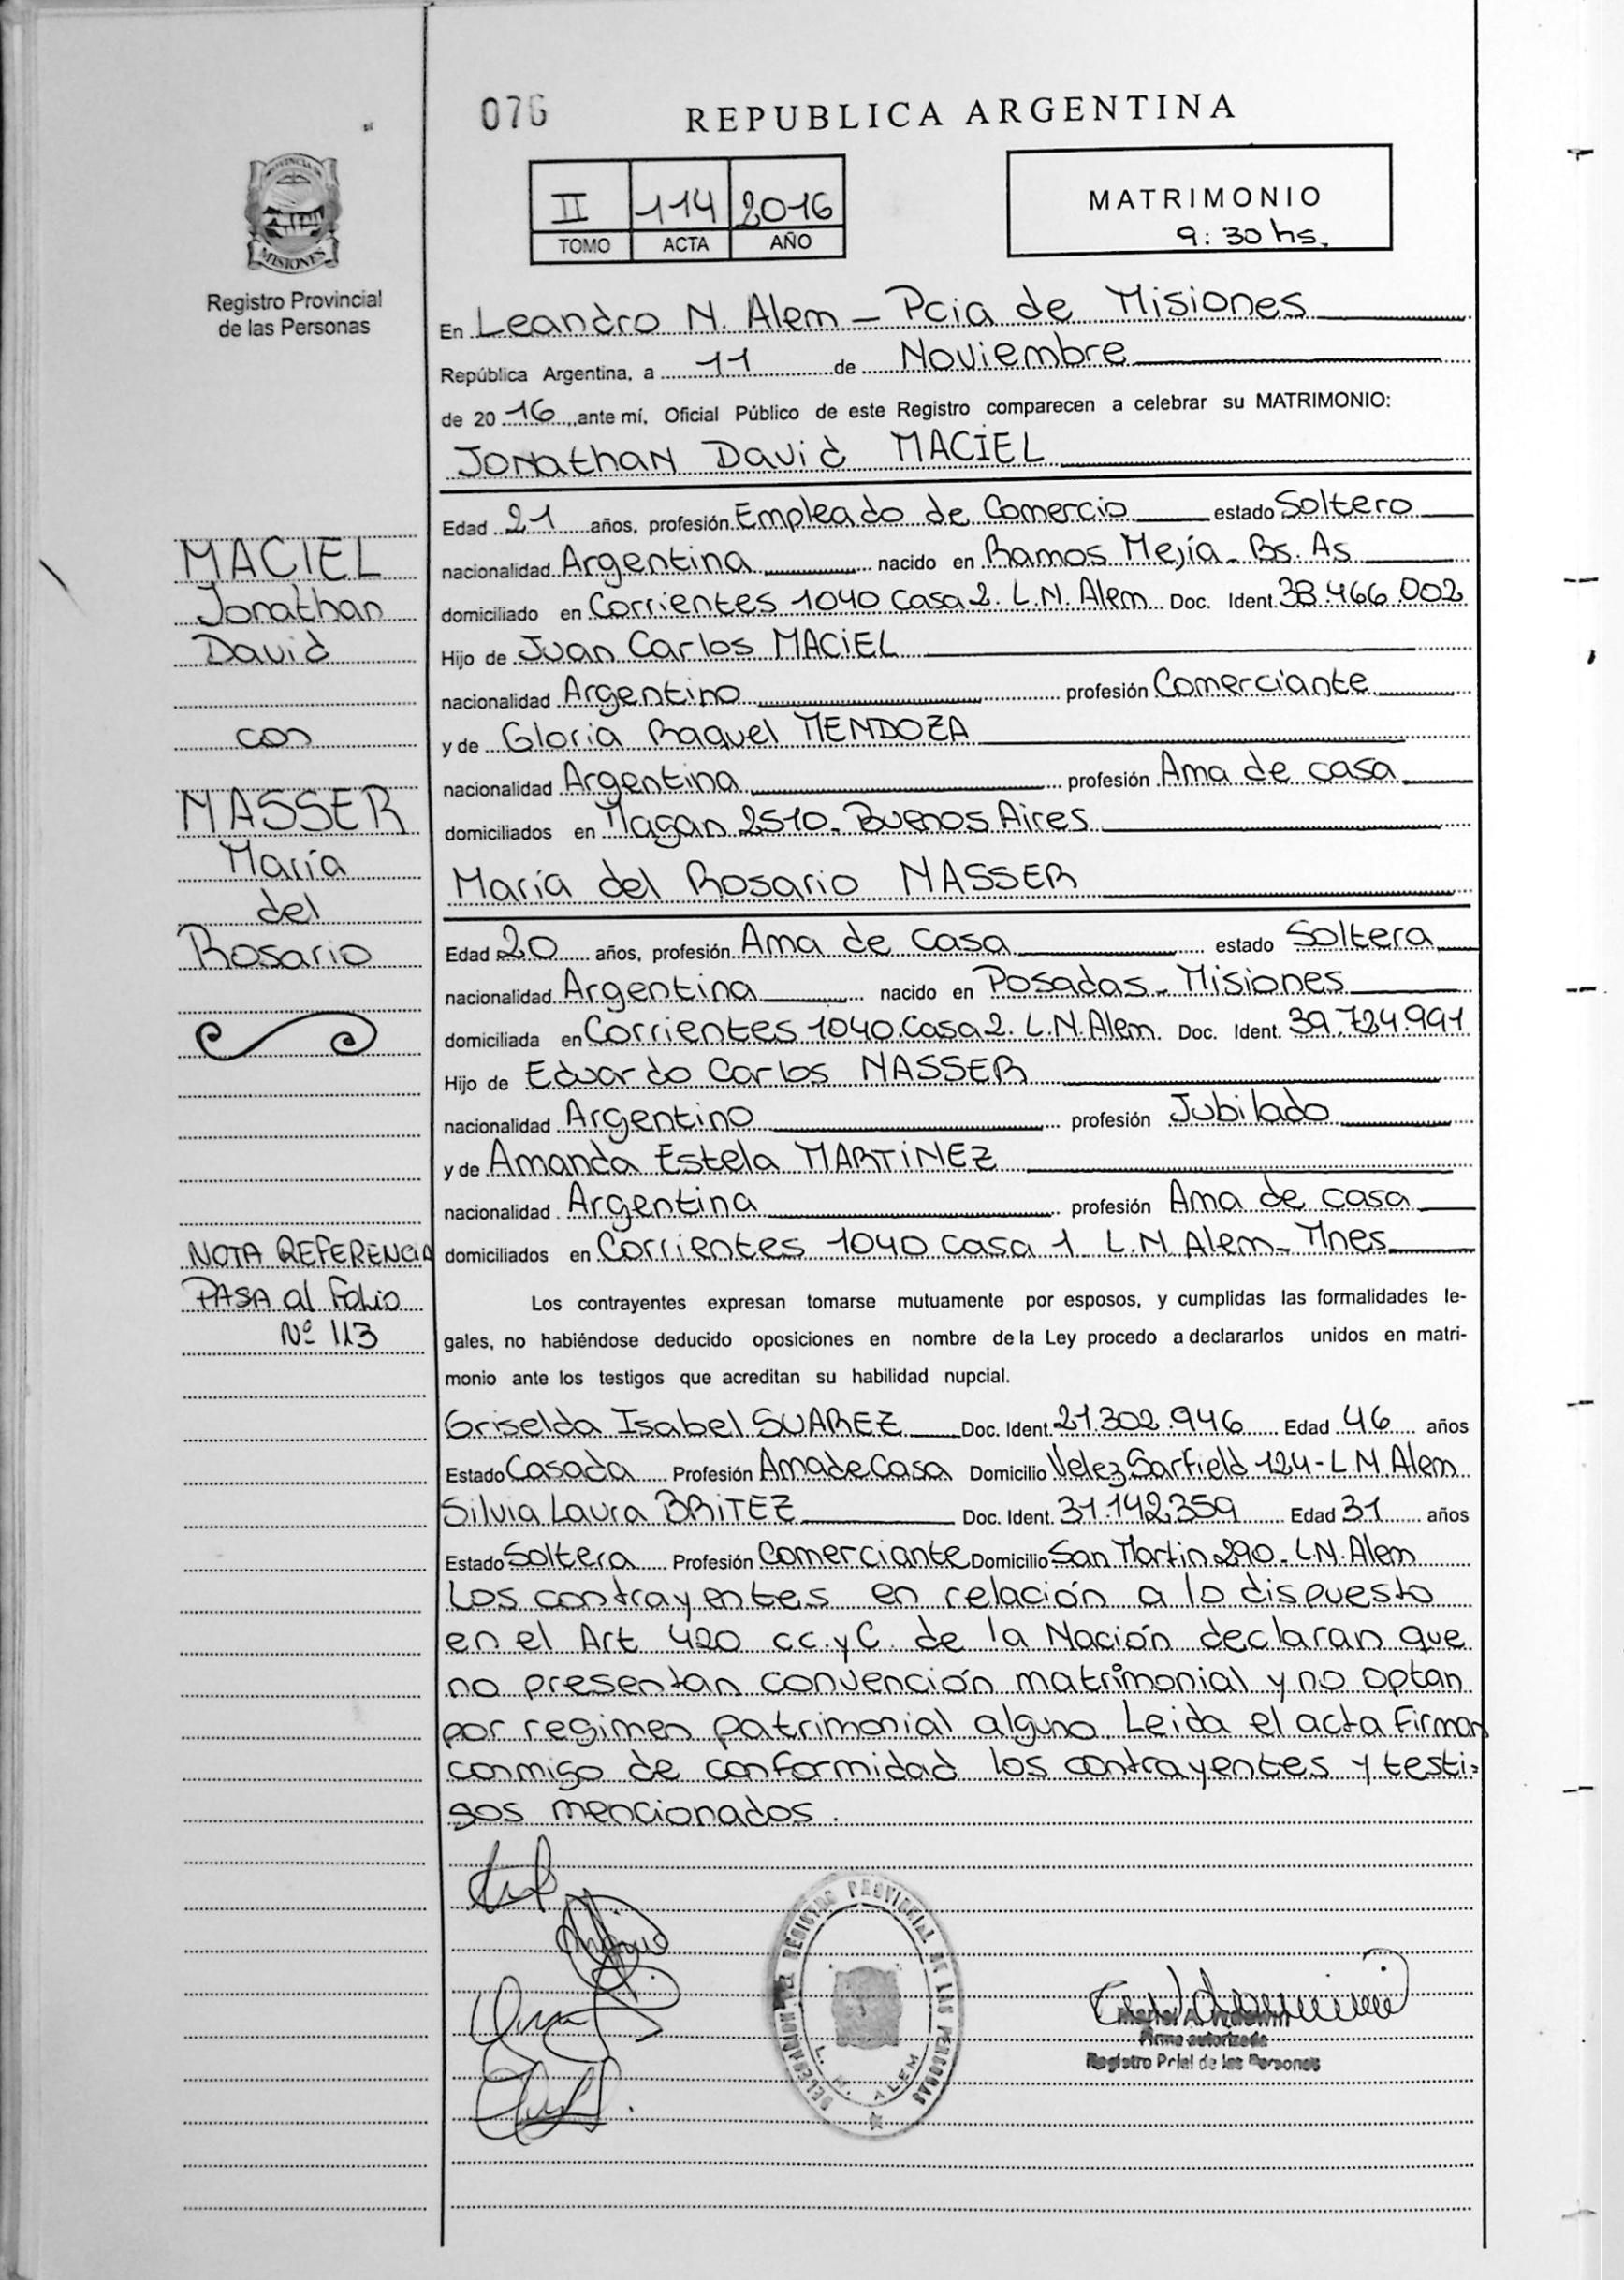 076
REPUBLICA ARGENTINA
II 114 2016
TOMO ACTA AÑO
MATRIMONIO
9:30 hs.
PROVINCIA DE
MISIONES
Registro Provincial
de las Personas
En Leandro N. Alem - Pcia de Misiones
República Argentina, a 11 de Noviembre
de 2016, ante mí, Oficial Público de este Registro comparecen a celebrar su MATRIMONIO:
Jonathan David MACIEL
Edad 21 años, profesión Empleado de Comercio estado Soltero
nacionalidad Argentina nacido en Ramos Mejía - Bs. As
domiciliado en Corrientes 1040 Casa 2. L.N. Alem Doc. Ident. 38.466.002
Hijo de Juan Carlos MACIEL
nacionalidad Argentino profesión Comerciante
y de Gloria Raquel MENDOZA
nacionalidad Argentina profesión Ama de casa
domiciliados en Magan 2510 - Buenos Aires
María del Rosario NASSER
Edad 20 años, profesión Ama de Casa estado Soltera
nacionalidad Argentina nacido en Posadas - Misiones
domiciliada en Corrientes 1040 Casa 2. L.N. Alem. Doc. Ident. 39.724.991
Hijo de Eduardo Carlos NASSER
nacionalidad Argentino profesión Jubilado
y de Amanda Estela MARTINEZ
nacionalidad Argentina profesión Ama de casa
domiciliados en Corrientes 1040 casa 1 L.N Alem - Mnes
Los contrayentes expresan tomarse mutuamente por esposos, y cumplidas las formalidades le-
gales, no habiéndose deducido oposiciones en nombre de la Ley procedo a declararlos unidos en matri-
monio ante los testigos que acreditan su habilidad nupcial.
Griselda Isabel SUAREZ Doc. Ident. 21.302.946 Edad 46 años
Estado Casada Profesión Ama de Casa Domicilio Velez Sarfield 124 - L N Alem
Silvia Laura BRITEZ Doc. Ident. 31.142.359 Edad 31 años
Estado Soltera Profesión Comerciante Domicilio San Martin 290 - L.N. Alem
Los contrayentes en relación a lo dispuesto
en el Art 420 c.c. y C. de la Nación declaran que
no presentan convención matrimonial y no optan
por regimen patrimonial alguno. Leida el acta Firman
conmigo de conformidad los contrayentes y testi=
gos mencionados.
MACIEL
Jonathan
David
con
NASSER
María
del
Rosario
NOTA REFERENCIA
PASA al Folio
Nº 113
DELEGACION REGISTRO PROVINCIAL DE LAS PERSONAS
L. N. ALEM
Firma autorizada
Registro Prial de las Personas